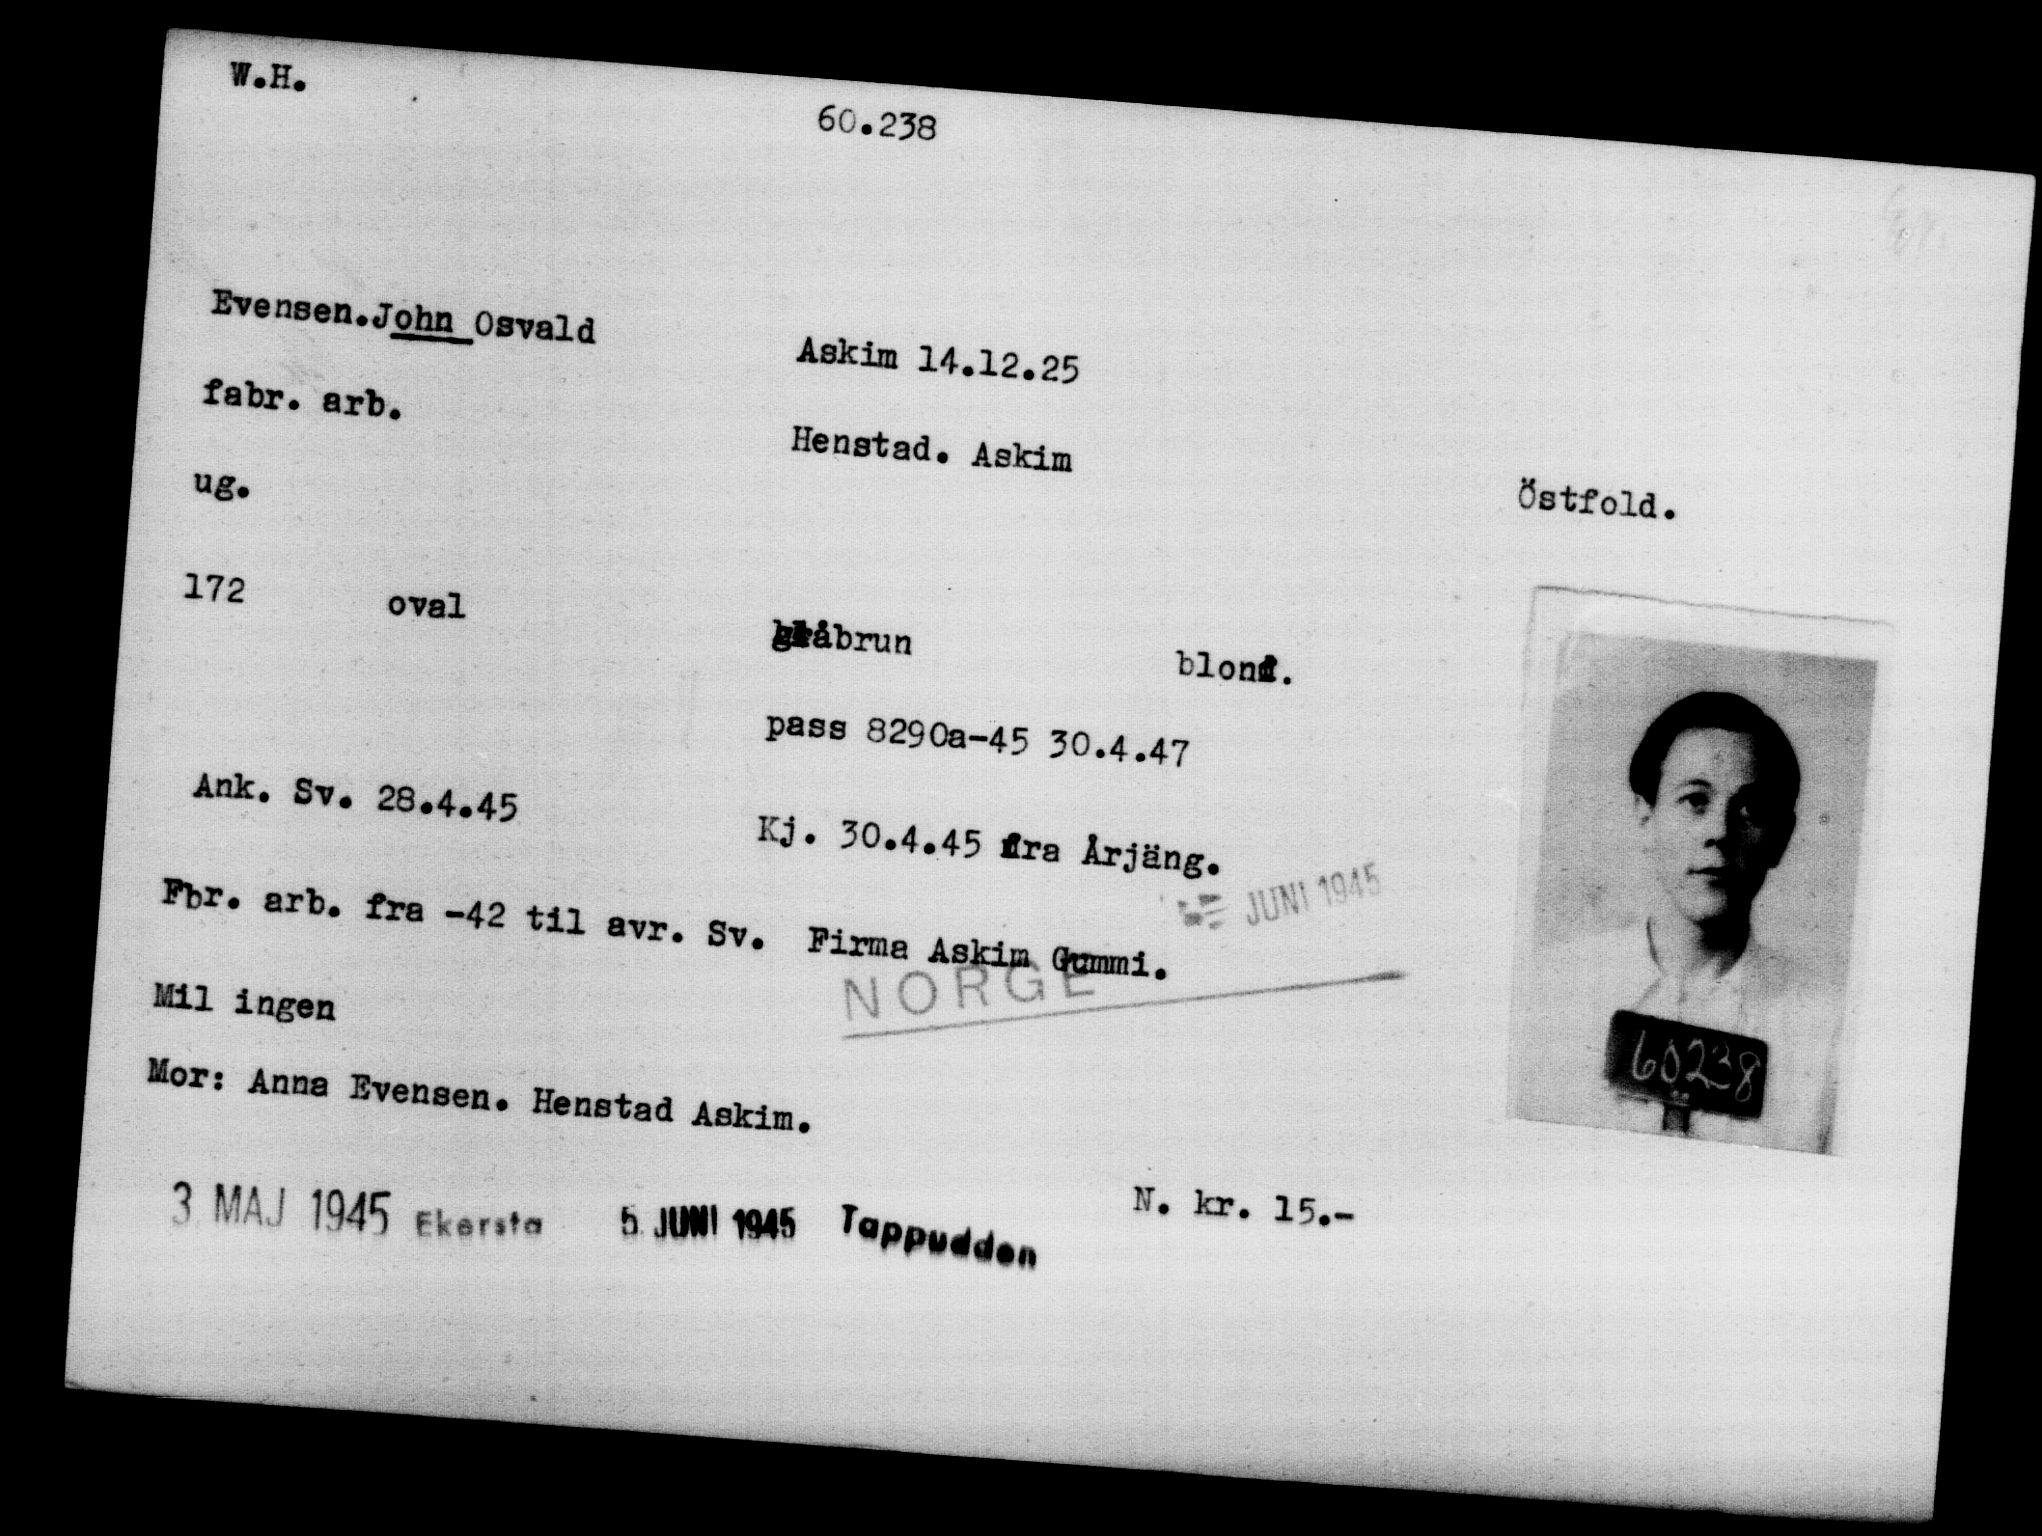 W.H.
60.238
Evensen.John Osvald
Askim 14.12.25
fabr. arb.
Henstad. Askim
Östfold.
ug.
172 oval gråbrun blond.
pass 8290a-45 30.4.47
Ank. Sv. 28.4.45
Kj. 30.4.45 fra Årjäng.
JUNI 1945
Fbr. arb. fra -42 til avr. Sv. Firma Askim Gummi.
NORGE
Mil ingen
Mor: Anna Evensen. Henstad Askim.
60238
3 MAJ 1945 Ekersta 5 JUNI 1945 Tappudden
N. kr. 15.-